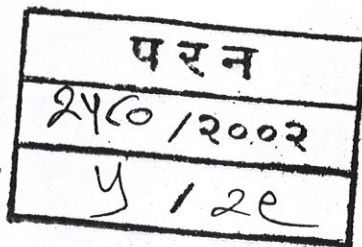 परन
२५८०/२००२
५/२९